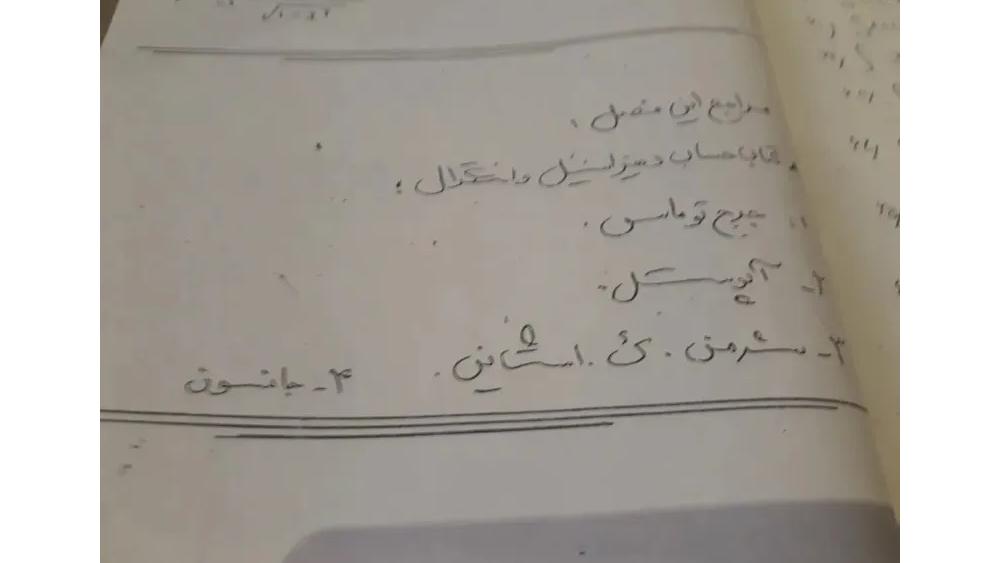 مراجع این فصل :
کتاب حساب دیفرانسیل و انتگرال :
۱. جرج توماس .
۲- آپوستل .
۳- شرمن . ک . استاین . ۴- جانسون